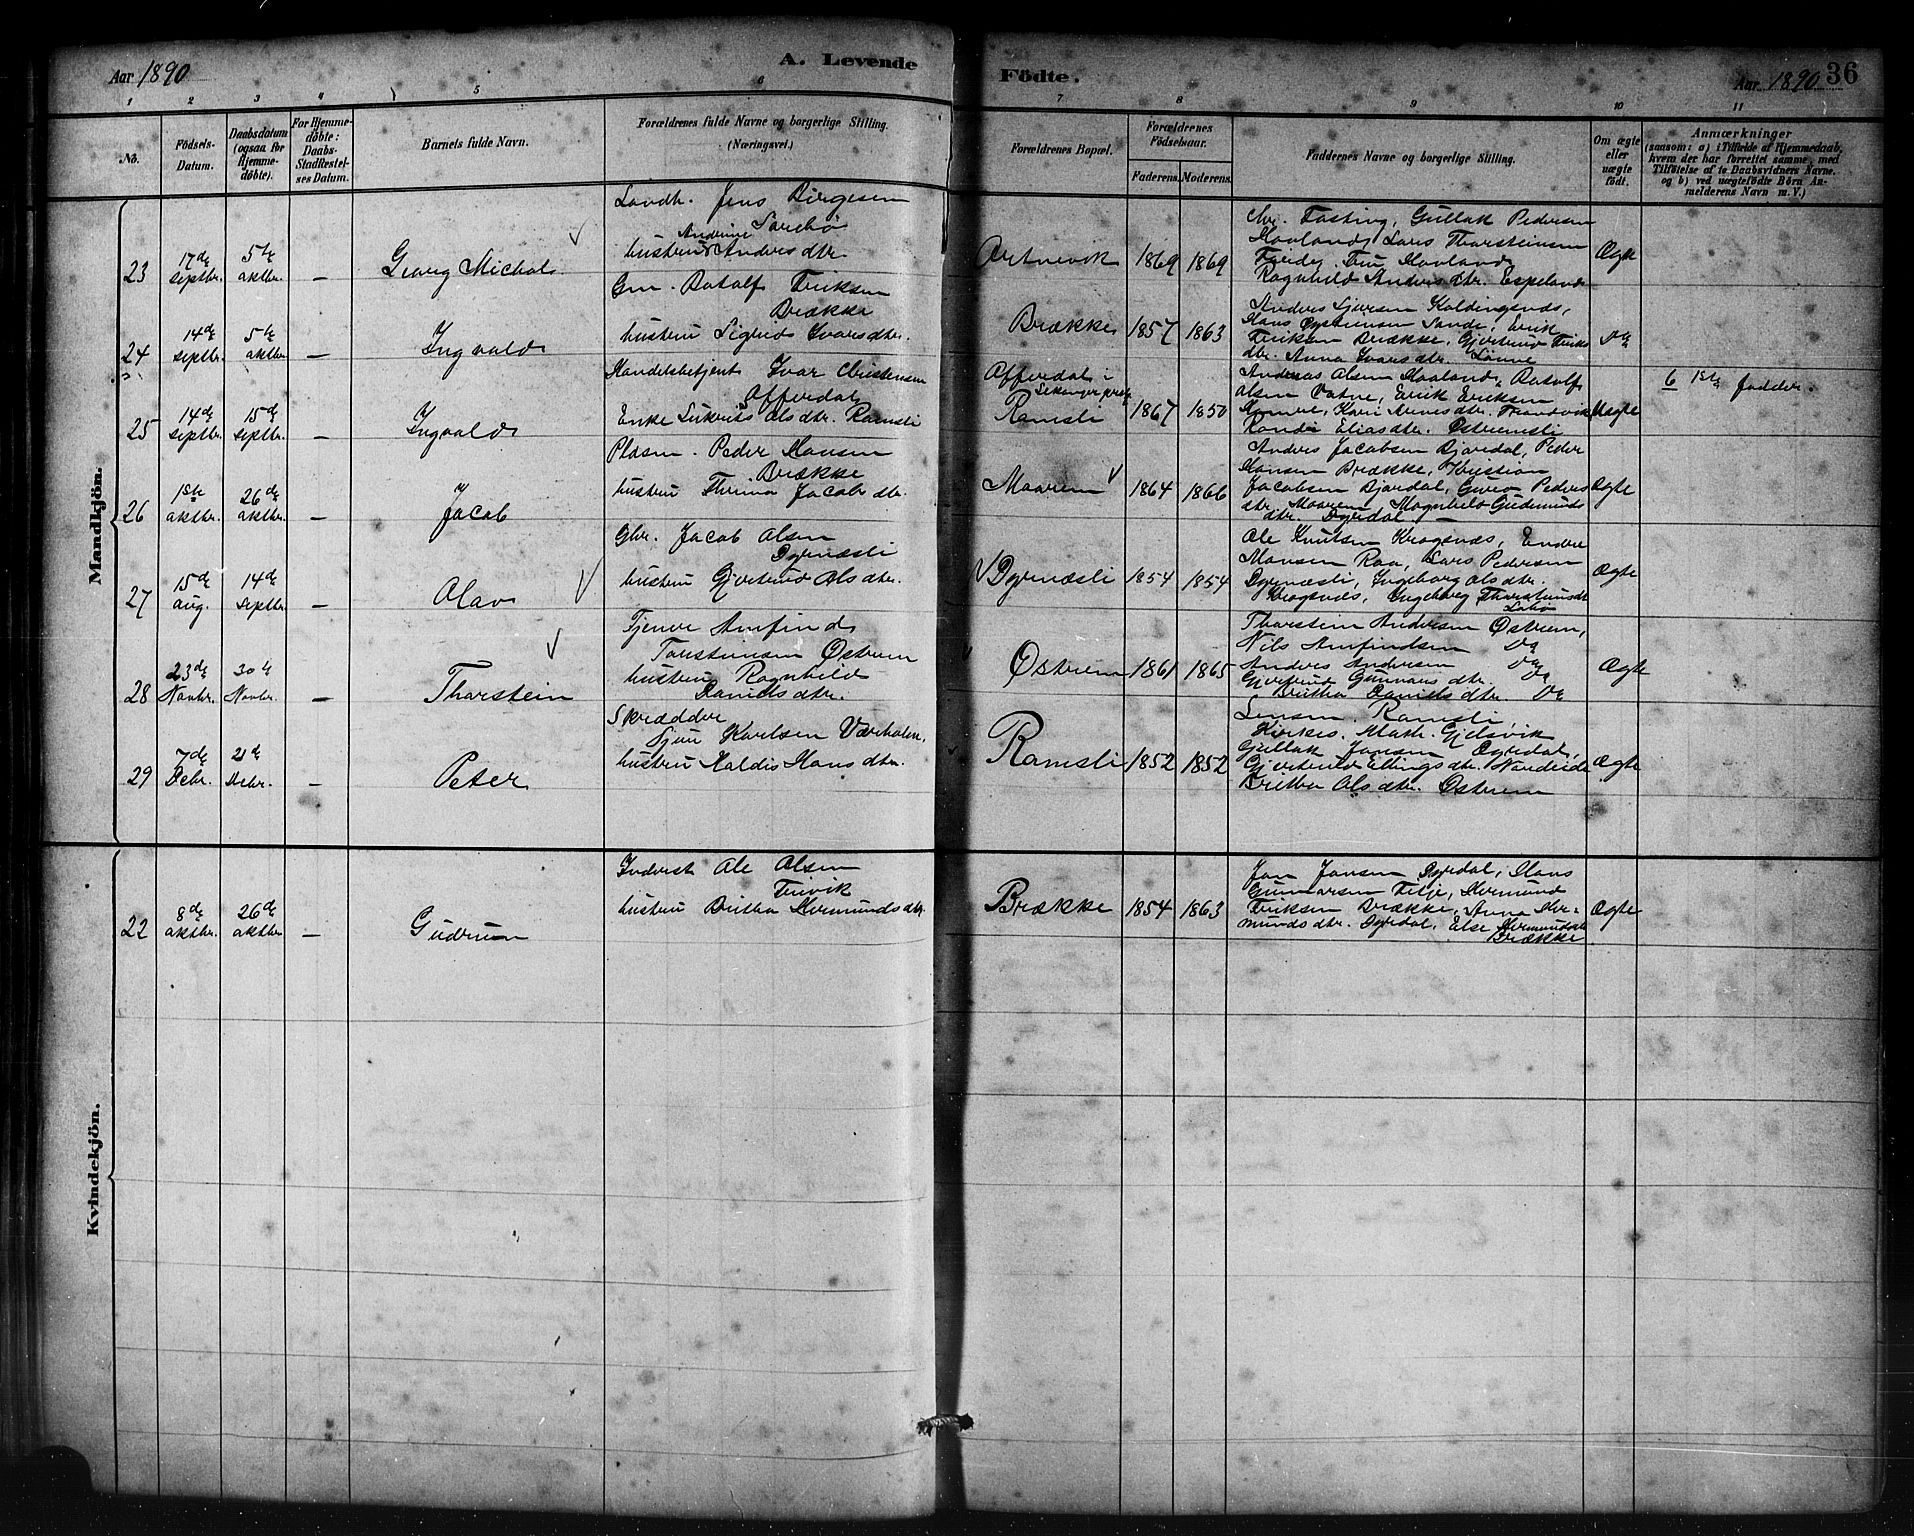 Aar 1890
A. Levende
Födte.
Aar 1890
36
1 2 3 4 5 6 7 8 9 10 11
No.
Födsels-
Datum.
Daabsdatum
(ogsaa for
Hjemme-
döbte).
For Hjemme-
döbte:
Daabs-
Stadfestel-
ses Datum.
Barnets fulde Navn.
Forældrenes fulde Navne og borgerlige Stilling.
(Næringsvei.)
Forældrenes Bopæl.
Forældrenes
Födselsaar.
Faderens. Moderens.
Faddernes Navne og borgerlige Stilling.
Om ægte
eller
uægte
födt.
Anmærkninger
(saasom: a) i Tilfælde af Hjemmedaab,
hvem der har forrettet samme, med
Tilföielse af to Daabsvidners Navne.
og b) ved uægtefödte Börn An-
melderens Navn m. V.)
Mandkjön.
23
17de
Septbr.
5te
oktbr.
–
Georg Michal
Landh. Jens Börgesen
Sørebø
hustru Andrine Andersdtr.
Artnevik
1869
1869
Chr. Fasting, Gullak Pedersen
Hovland, Lars Thorsteinsen
Hovland
Ragnhild Andersdtr. Espeland
Ægte
24
14de
Septbr.
5te
oktbr.
–
Ingvald
Gm. Rotolf Eriksen
Brække
hustru Sigrid Ivarsdtr.
Brække
1857
1863
Anders Sjursen Kaldingsnds,
Hans Øystensen Sande, Erik
Eriksen Brække, Gjertrud Eriks
dtr. Anna Ivarsdtr. Lønne
Do
25
14de
Septbr.
15de
Septbr.
–
Ingvald
Handelsbetjent Ivar Christensen
Offerdal
Enke Lukris Olsdtr. Ramsli
Offerdal i
Ramsli
1867
1850
Andreas Olsen Haaland, Rotolf
Olsen Vatne, Erik Eriksen
Kari Arnesdtr. Trandvik
Randi Eliasdtr. Østremsli
Uægte
6 1ste fadder.
26
1ste
oktbr.
26de
oktbr.
–
Jacob
Pladsm. Peder Hansen
Brække
hustru Thrina Jacobdtr.
Maaren
1864
1866
Anders Jacobsen Bjordal, Peder
Hansen Brække, Kristian
Jacobsen Bjordal, Guro Peders
dtr. Maaren, Magnhild Gudmunds
dtr. Dyrdal. –
Ægte
27
15de
aug.
14de
Septbr.
–
Olav
Gbr. Jacob Olsen
Dyrnæsli
hustru Gjertrud Olsdtr.
Dyrnæsli
1854
1854
Ole Knutsen Krogsnæs, Endre
Monsen Raa, Lars Pedersen
Dyrnæsli, Ingeborg Olsdtr.
Krogsnæs, Ingeborg Thorsteinsdt
Ægte
28
23de
Novbr.
30te
Novbr.
–
Thorstein
Tjener Amfind
Torsteinsen Østrem
hustru Ragnhild
Danielsdtr.
Østrem
1861
1865
Thorstein Andersen Østrem,
Nils Amfindsen Do
Anders Andersen Do
Gjertrud Gunnarsdtr. Do
Britha Danielsdtr. Do
Ægte
29
7de
Debr.
21de
Debr.
–
Peter
Skrædder
Sjur Karlsen Værholm,
hustru Haldis Hansdtr.
Ramsli
1852
1852
Lensm. Ramsli,
Kirkes. Math. Gjelsvik
Gullak Jonsen Dyrdal,
Gjertrud Ellingsdtr. Nordeide
Britha Olsdtr. Østrem
Ægte
Kvindekjön.
22
8de
oktbr.
26de
oktbr.
–
Gudrun
Inderst Ole Olsen
Trivik
hustru Britha Hermundsdtr.
Brække
1854
1863
Jon Jonsen Dyrdal, Hans
Gunnarsen Tetje, Hermund
Eriksen Brække, Anna Her-
mundsdtr. Dyrdal, Else Hermundsdtr
Brække
Ægte